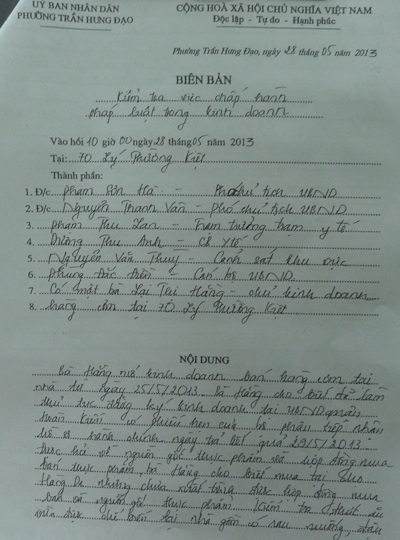 UỶ BAN NHÂN DÂN
PHƯỜNG TRẦN HƯNG ĐẠO
CỘNG HOÀ XÃ HỘI CHỦ NGHĨA VIỆT NAM
Độc lập - Tự do - Hạnh phúc
Phường Trần Hưng Đạo, ngày 28 tháng 05 năm 2013
BIÊN BẢN
Kiểm tra việc chấp hành
pháp luật trong kinh doanh
Vào hồi 10 giờ 00 ngày 28 tháng 05 năm 2013
Tại: 70 Lý Thường Kiệt
Thành phần:
1. Đ/c Phạm Sơn Hà - Phó chủ tịch UBND
2. Đ/c Nguyễn Thanh Vân - Phó chủ tịch UBND
3. Phạm Thu Lan - Trạm trưởng trạm y tế
4. Dương Thu Anh - CB Y tế
5. Nguyễn Văn Thuỷ - Cảnh sát khu vực
6. Phùng - Cán bộ UBND
7. Có mặt bà Lại Thị Hằng - chủ kinh doanh
8. hàng cơm tại 70 Lý Thường Kiệt
NỘI DUNG
Bà Hằng kinh doanh bán hàng cơm tại
nhà từ ngày 25/5/2013. Bà Hằng cho biết đã làm
thủ tục đăng ký kinh doanh tại UBND quận
Hoàn Kiếm có phiếu hẹn của bộ phận tiếp nhận
hồ sơ hành chính ngày trả kết quả 29/5/2013.
về nguồn gốc thực phẩm và hợp đồng mua
bán thực phẩm bà Hằng cho biết mua tại chợ
Hàng Da nhưng chưa xuất trình được hợp đồng mua
bán và nguồn gốc thực phẩm. Kiểm tra
được chế biến tại nhà gồm có rau muống, đậu